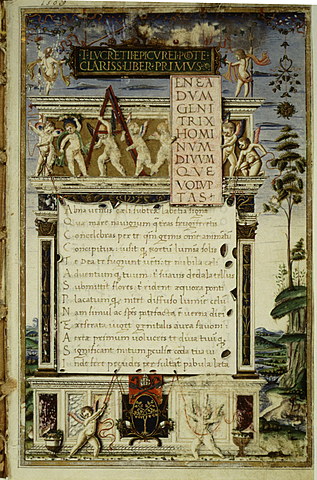 T·LVCRETII·EPICVREI·POETE
CLARISS·LIBER·PRIMVS·
A
ENEA
DVM
GENI
TRIX
HOMI
NVM
DIVVM
QVE
VOLVP
TAS·
Alma venus cæli subter labentia signa
Quæ mare navigerum quæ terras frugiferentis
Concelebras per te qm̄ genus omne animantū
Concipitur visitq; exortū lumina solis
Te dea te fugiunt venti te nubila cæli
Adventumq; tuum t̄ suaves dedala tellus
Submittit flores t̄ rident æquora ponti
Placatumq; nitet diffuso lumine cælum
Nam simul ac species patefacta ē verna diei
Et reserata viget genitalis aura favoni
Aeriæ primum volucres te diva tuūq;
Significant initum perculsæ corda tua vi
Inde fere pecudes persultant pabula læta